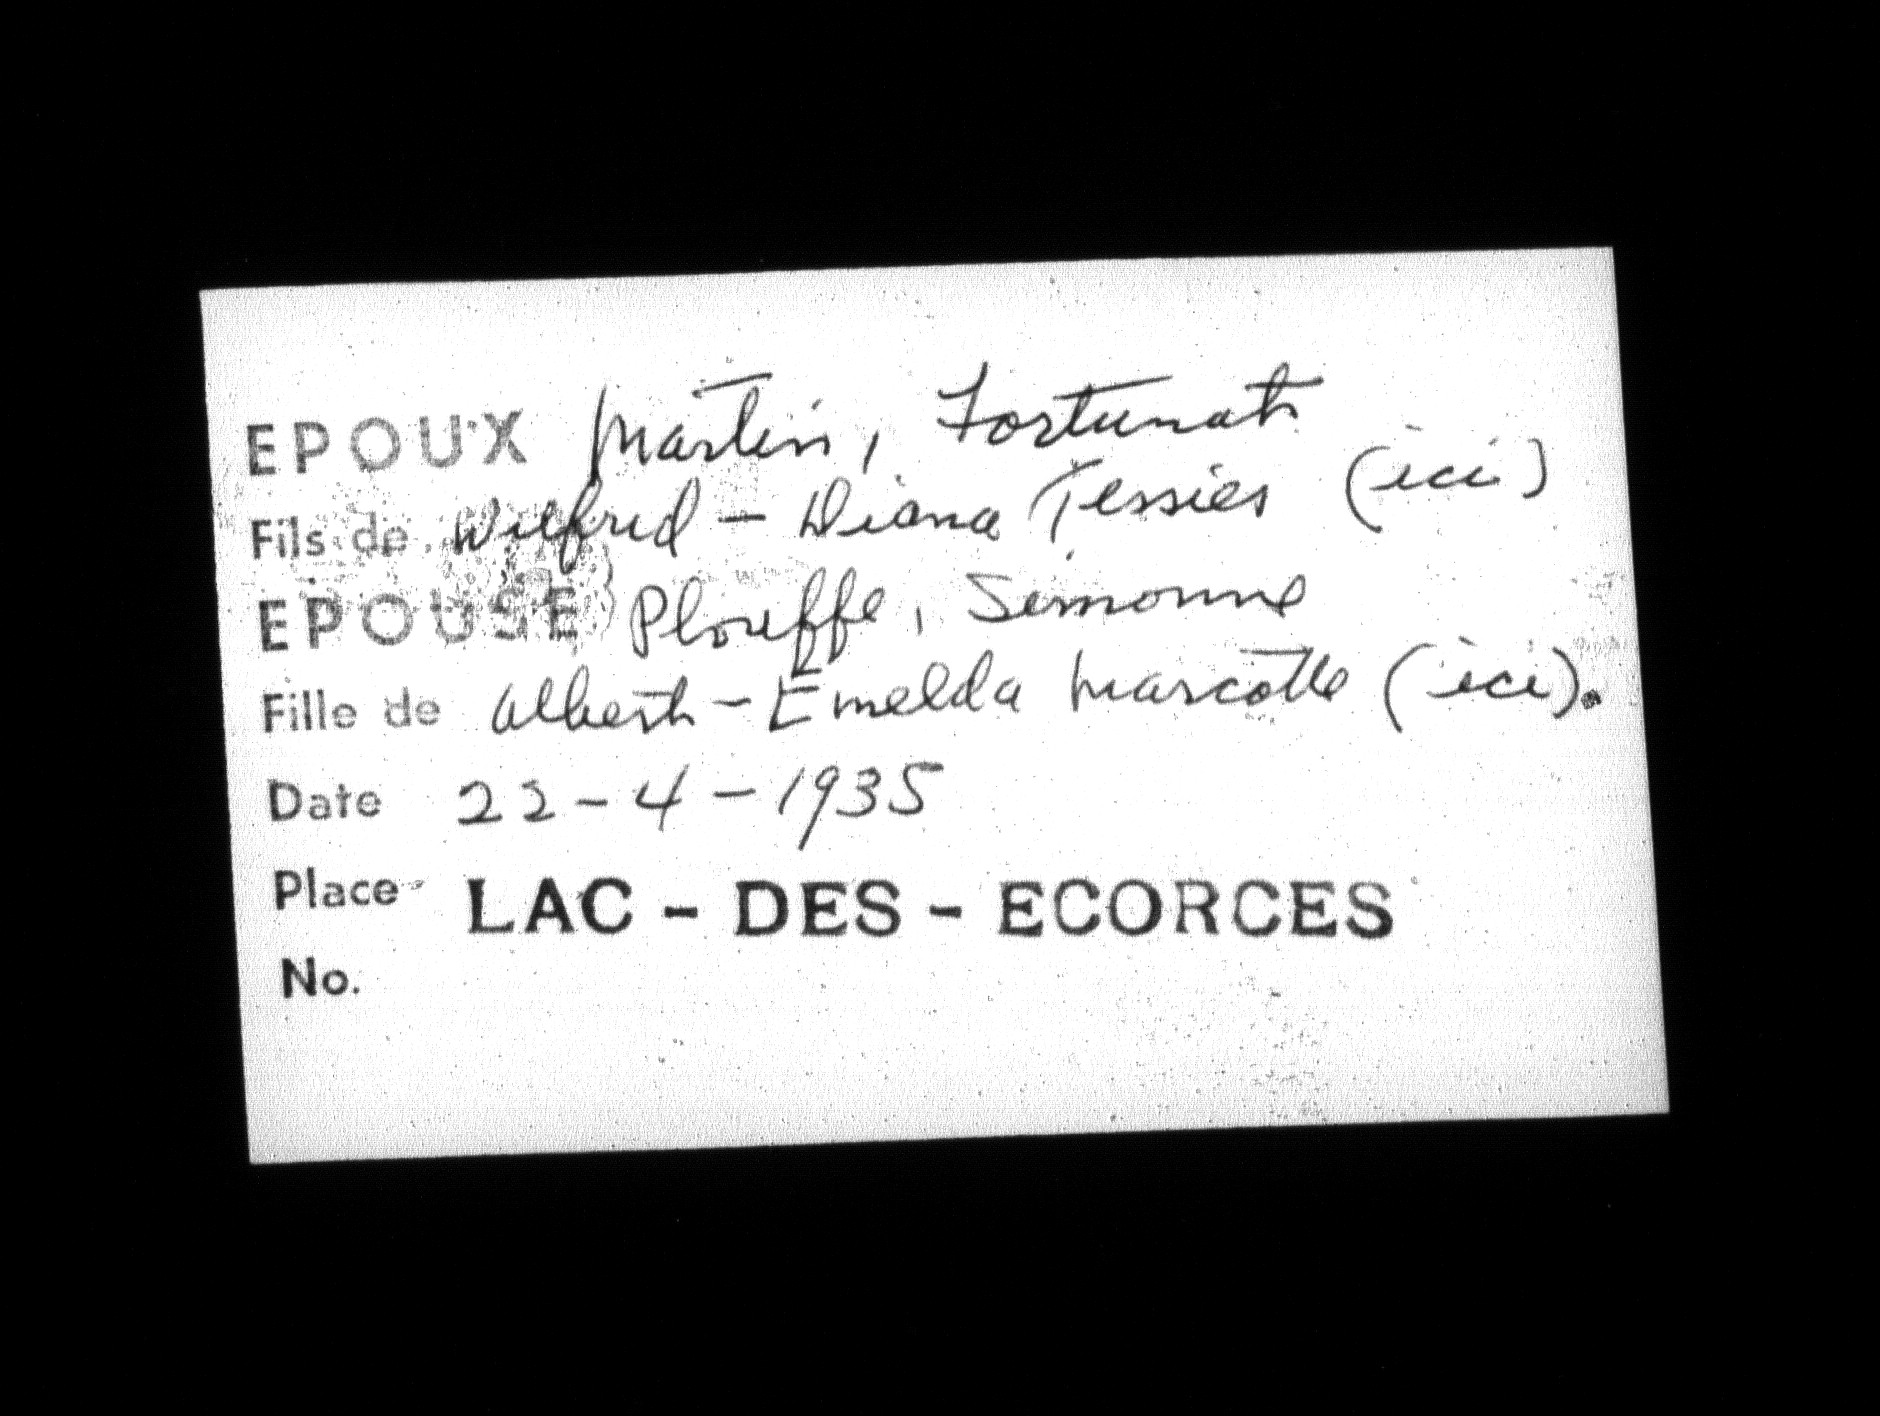 EPOUX Martin, Fortunat
Fils de Wilfrid - Diana Tessier (ici)
EPOUSE Plouffe, Simonne
Fille de Albert - Emelda Marcotte (ici).
Date 22-4-1935
Place LAC - DES - ECORCES
No.